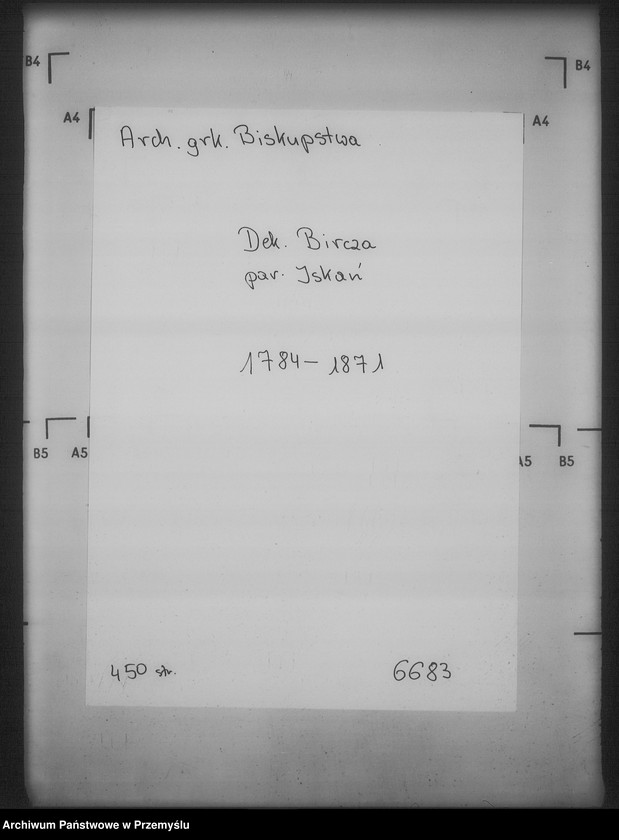 B4
B4
A4
A4
Arch. grk. Biskupstwa
Dek. Bircza
par. Iskań
1784 – 1871
B5 A5
A5 B5
450 str.
6683
Archiwum Państwowe w Przemyślu